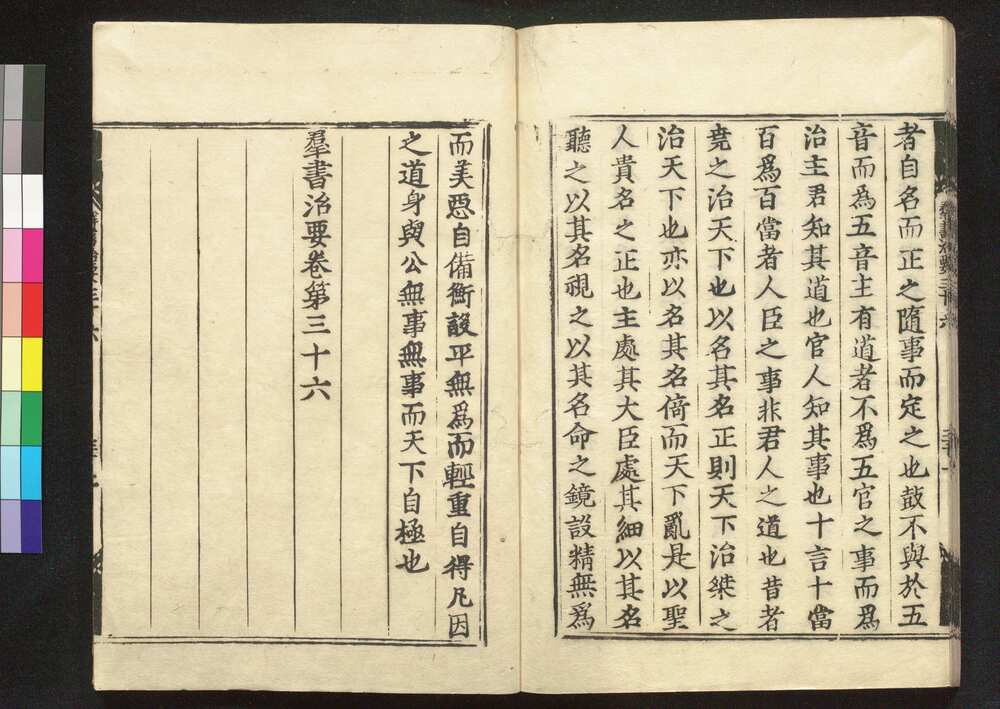 者自名而正之隨事而定之也鼓不與於五
音而爲五音主有道者不爲五官之事而爲
治主君知其道也官人知其事也十言十當
百爲百當者人臣之事非君人之道也昔者
尭之治天下也以名其名正則天下治桀之
治天下也亦以名其名倚而天下亂是以聖
人貴名之正也主處其大臣處其細以其名
聽之以其名視之以其名命之鏡設精無爲
而美惡自備衡設平無爲而輕重自得凡因
之道身與公無事無事而天下自極也
羣書治要卷第三十六